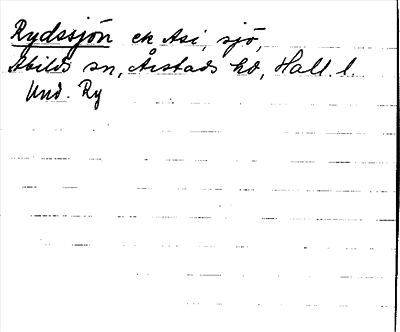 Rydssjön ek Asi, sjö,
Abilds sn, Årstads hd, Hall. l.
Und. Ry